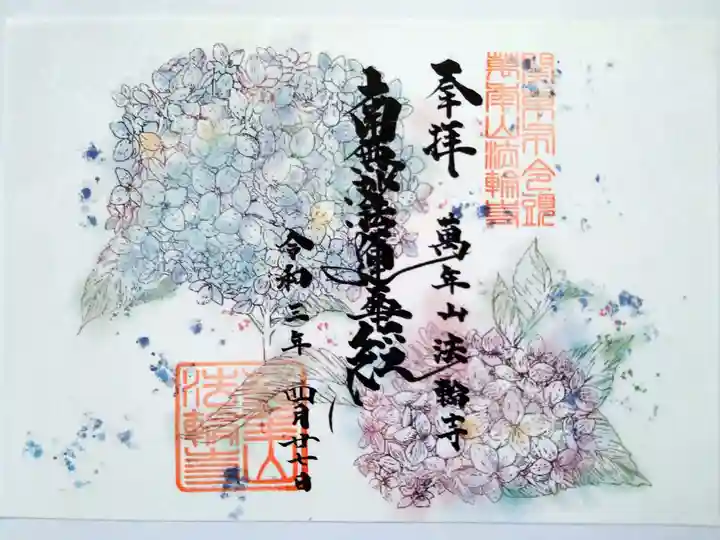 萬年山法輪寺
奉拝
萬年山法輪寺
南無妙法蓮華経
令和三年
四月廿七日
萬年山
法輪寺